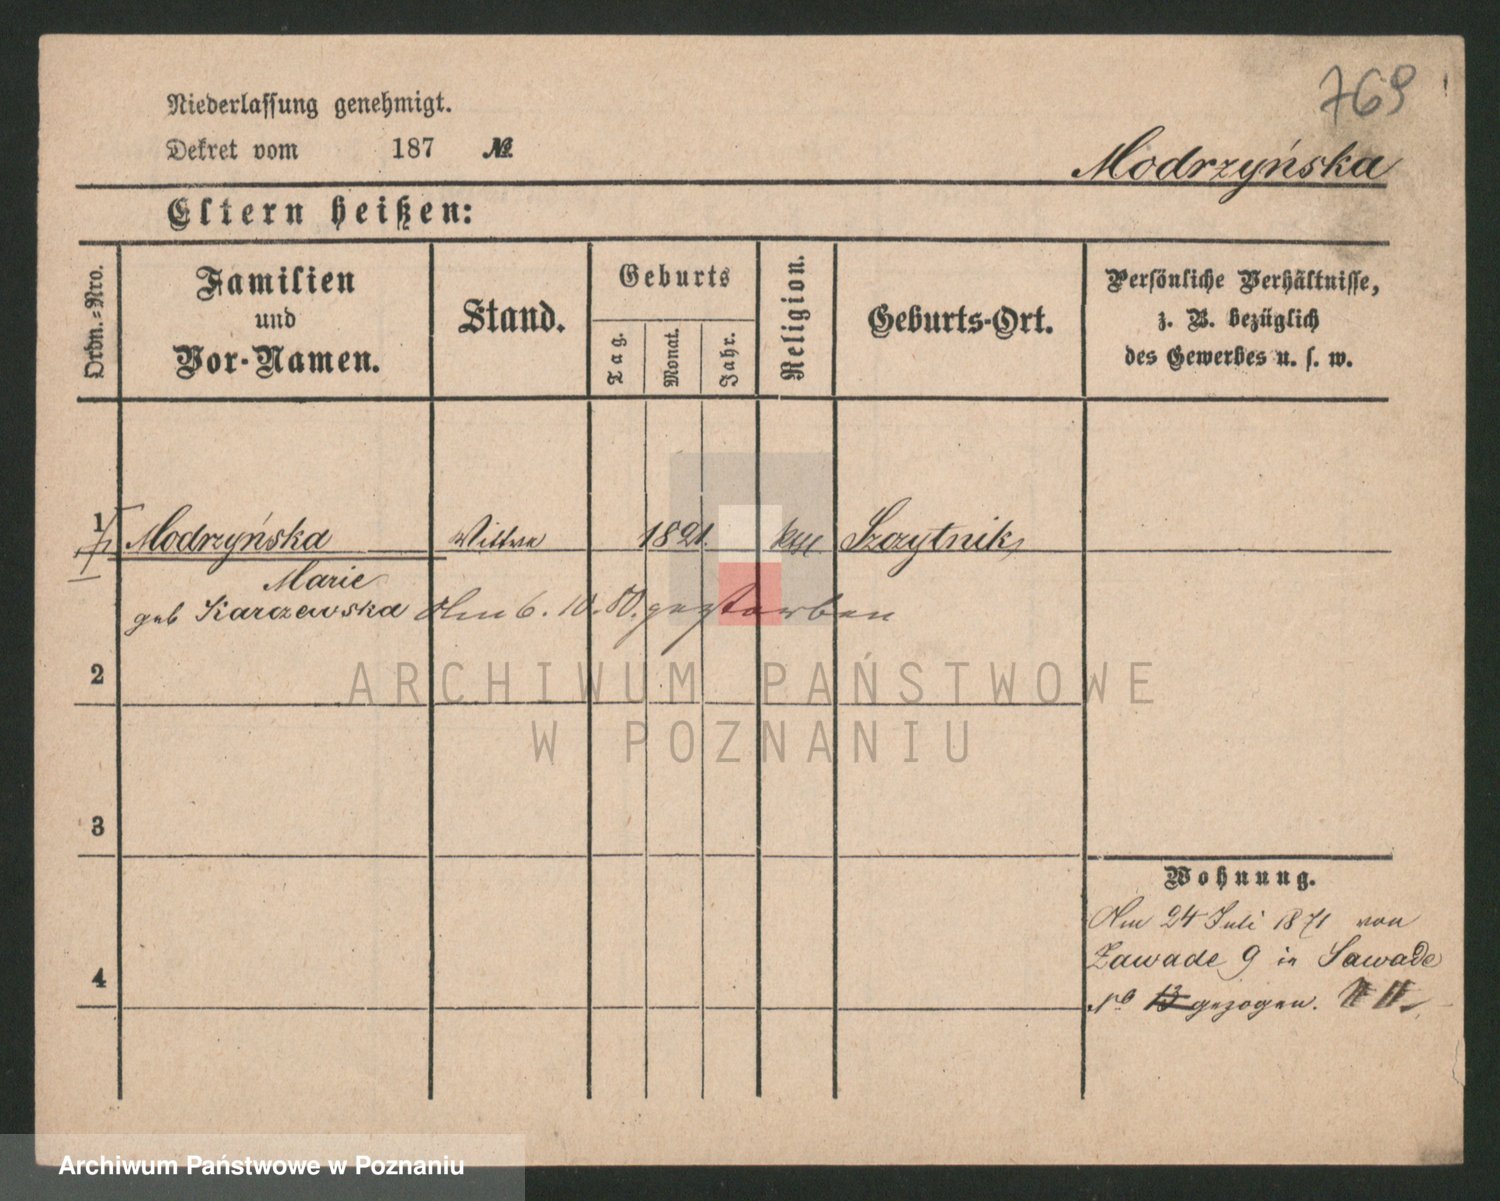 769
Niederlassung genehmigt.
Dekret vom 187 №
Modrzyńska
Eltern heißen:
Ordn.-Nro.
Familien und Vor-Namen.
Stand.
Geburts
Tag. Monat. Jahr.
Religion.
Geburts-Ort.
Persönliche Verhältnisse,
z. B. bezüglich
des Gewerbes u. s. w.
1 Modrzyńska Wittwe 1821 kath Szczytnik
Marie
geb Karczewska Am 6. 10. 80. gestorben
2
ARCHIWUM PAŃSTWOWE
W POZNANIU
3
Wohnung.
Am 24 Juli 1871 von
Zawade 9 in Zawade
4
No 13 gezogen.
Archiwum Państwowe w Poznaniu